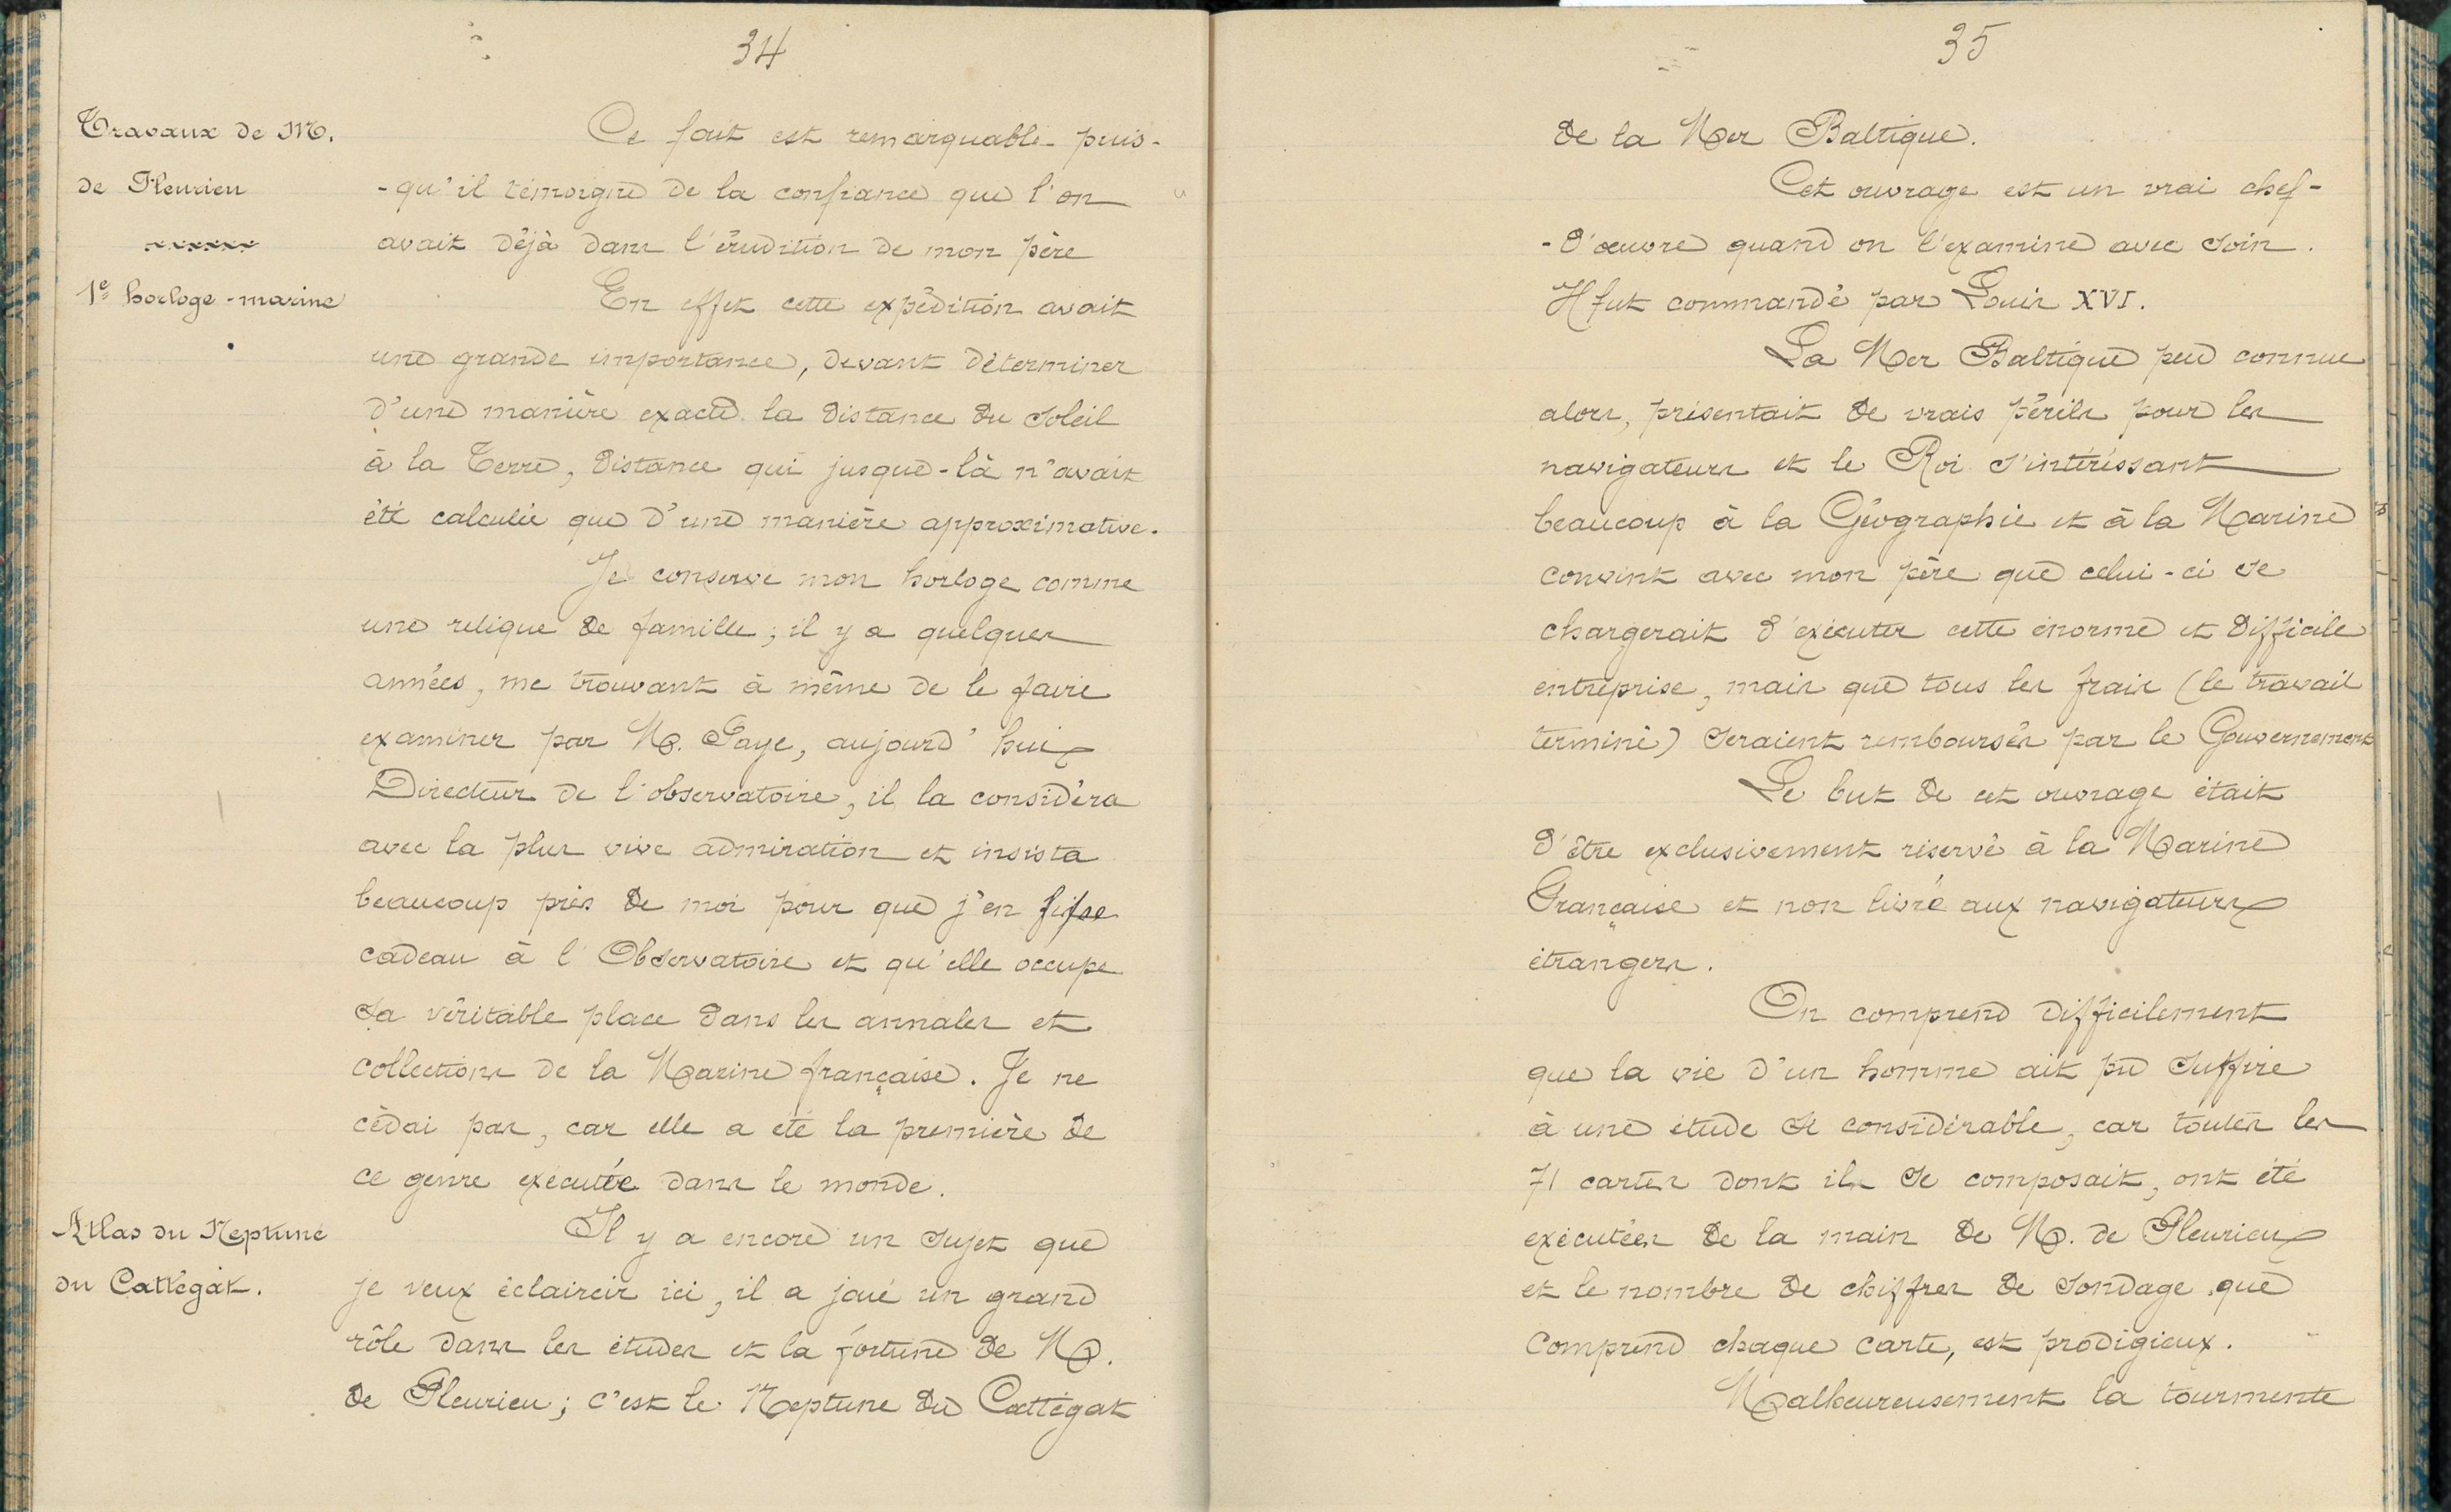 34
Travaux de M.
de Fleurieu
1e horloge-marine
Ce fait est remarquable puis-
-qu'il témoigne de la confiance que l'on
avait déjà dans l'érudition de mon père
En effet cette expédition avait
une grande importance, devant déterminer
d'une manière exacte la distance du Soleil
à la Terre, distance qui jusque-là n'avait
été calculée que d'une manière approximative.
Je conserve mon horloge comme
une relique de famille; il y a quelques
années, me trouvant à même de le faire
examiner par M. Faye, aujourd'hui
Directeur de l'observatoire, il la considéra
avec la plus vive admiration et insista
beaucoup près de moi pour que j'en fisse
cadeau à l'Observatoire et qu'elle occupe
sa véritable place dans les annales et
collections de la Marine française. Je ne
cédai pas, car elle a été la première de
ce genre exécutée dans le monde.
Atlas du Neptune
du Cattégat.
Il y a encore un sujet que
je veux éclaircir ici, il a joué un grand
rôle dans les études et la fortune de M.
de Fleurieu; c'est le Neptune du Cattégat
35
de la Mer Baltique.
Cet ouvrage est un vrai chef-
-d'œuvre quand on l'examine avec soin.
Il fut commandé par Louis XVI.
La Mer Baltique peu connue
alors, présentait de vrais périls pour les
navigateurs et le Roi s'intéressant
beaucoup à la Géographie et à la Marine
convint avec mon père que celui-ci se
chargerait d'exécuter cette énorme et difficile
entreprise, mais que tous les frais (le travail
terminé) seraient remboursés par le Gouvernement
Le but de cet ouvrage était
d'être exclusivement réservé à la Marine
Française et non livré aux navigateurs
étrangers.
On comprend difficilement
que la vie d'un homme ait pu suffire
à une étude si considérable, car toutes les
71 cartes dont il se composait, ont été
exécutées de la main de M. de Fleurieu
et le nombre de chiffres de sondage que
comprend chaque carte, est prodigieux.
Malheureusement la tourmente